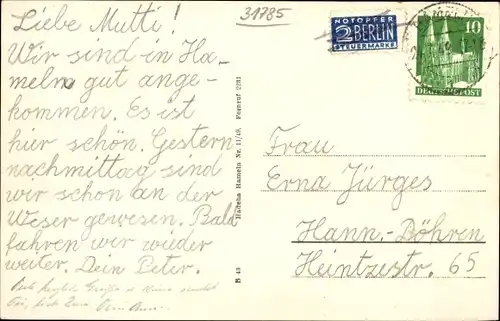 Liebe Mutti!
Wir sind in Ha-
meln gut ange-
kommen. Es ist
hier schön. Gestern
nachmittag sind
wir schon an der
Weser gewesen. Bald
fahren wir wieder
weiter. Dein Peter.
31785
NOTOPFER
2 BERLIN
STEUERMARKE
10
DEUTSCHE POST
Hameln Nr. 11/49. Fernruf 2281
B 43
Frau
Erna Jürges
Hann.-Döhren
Heintzestr. 65